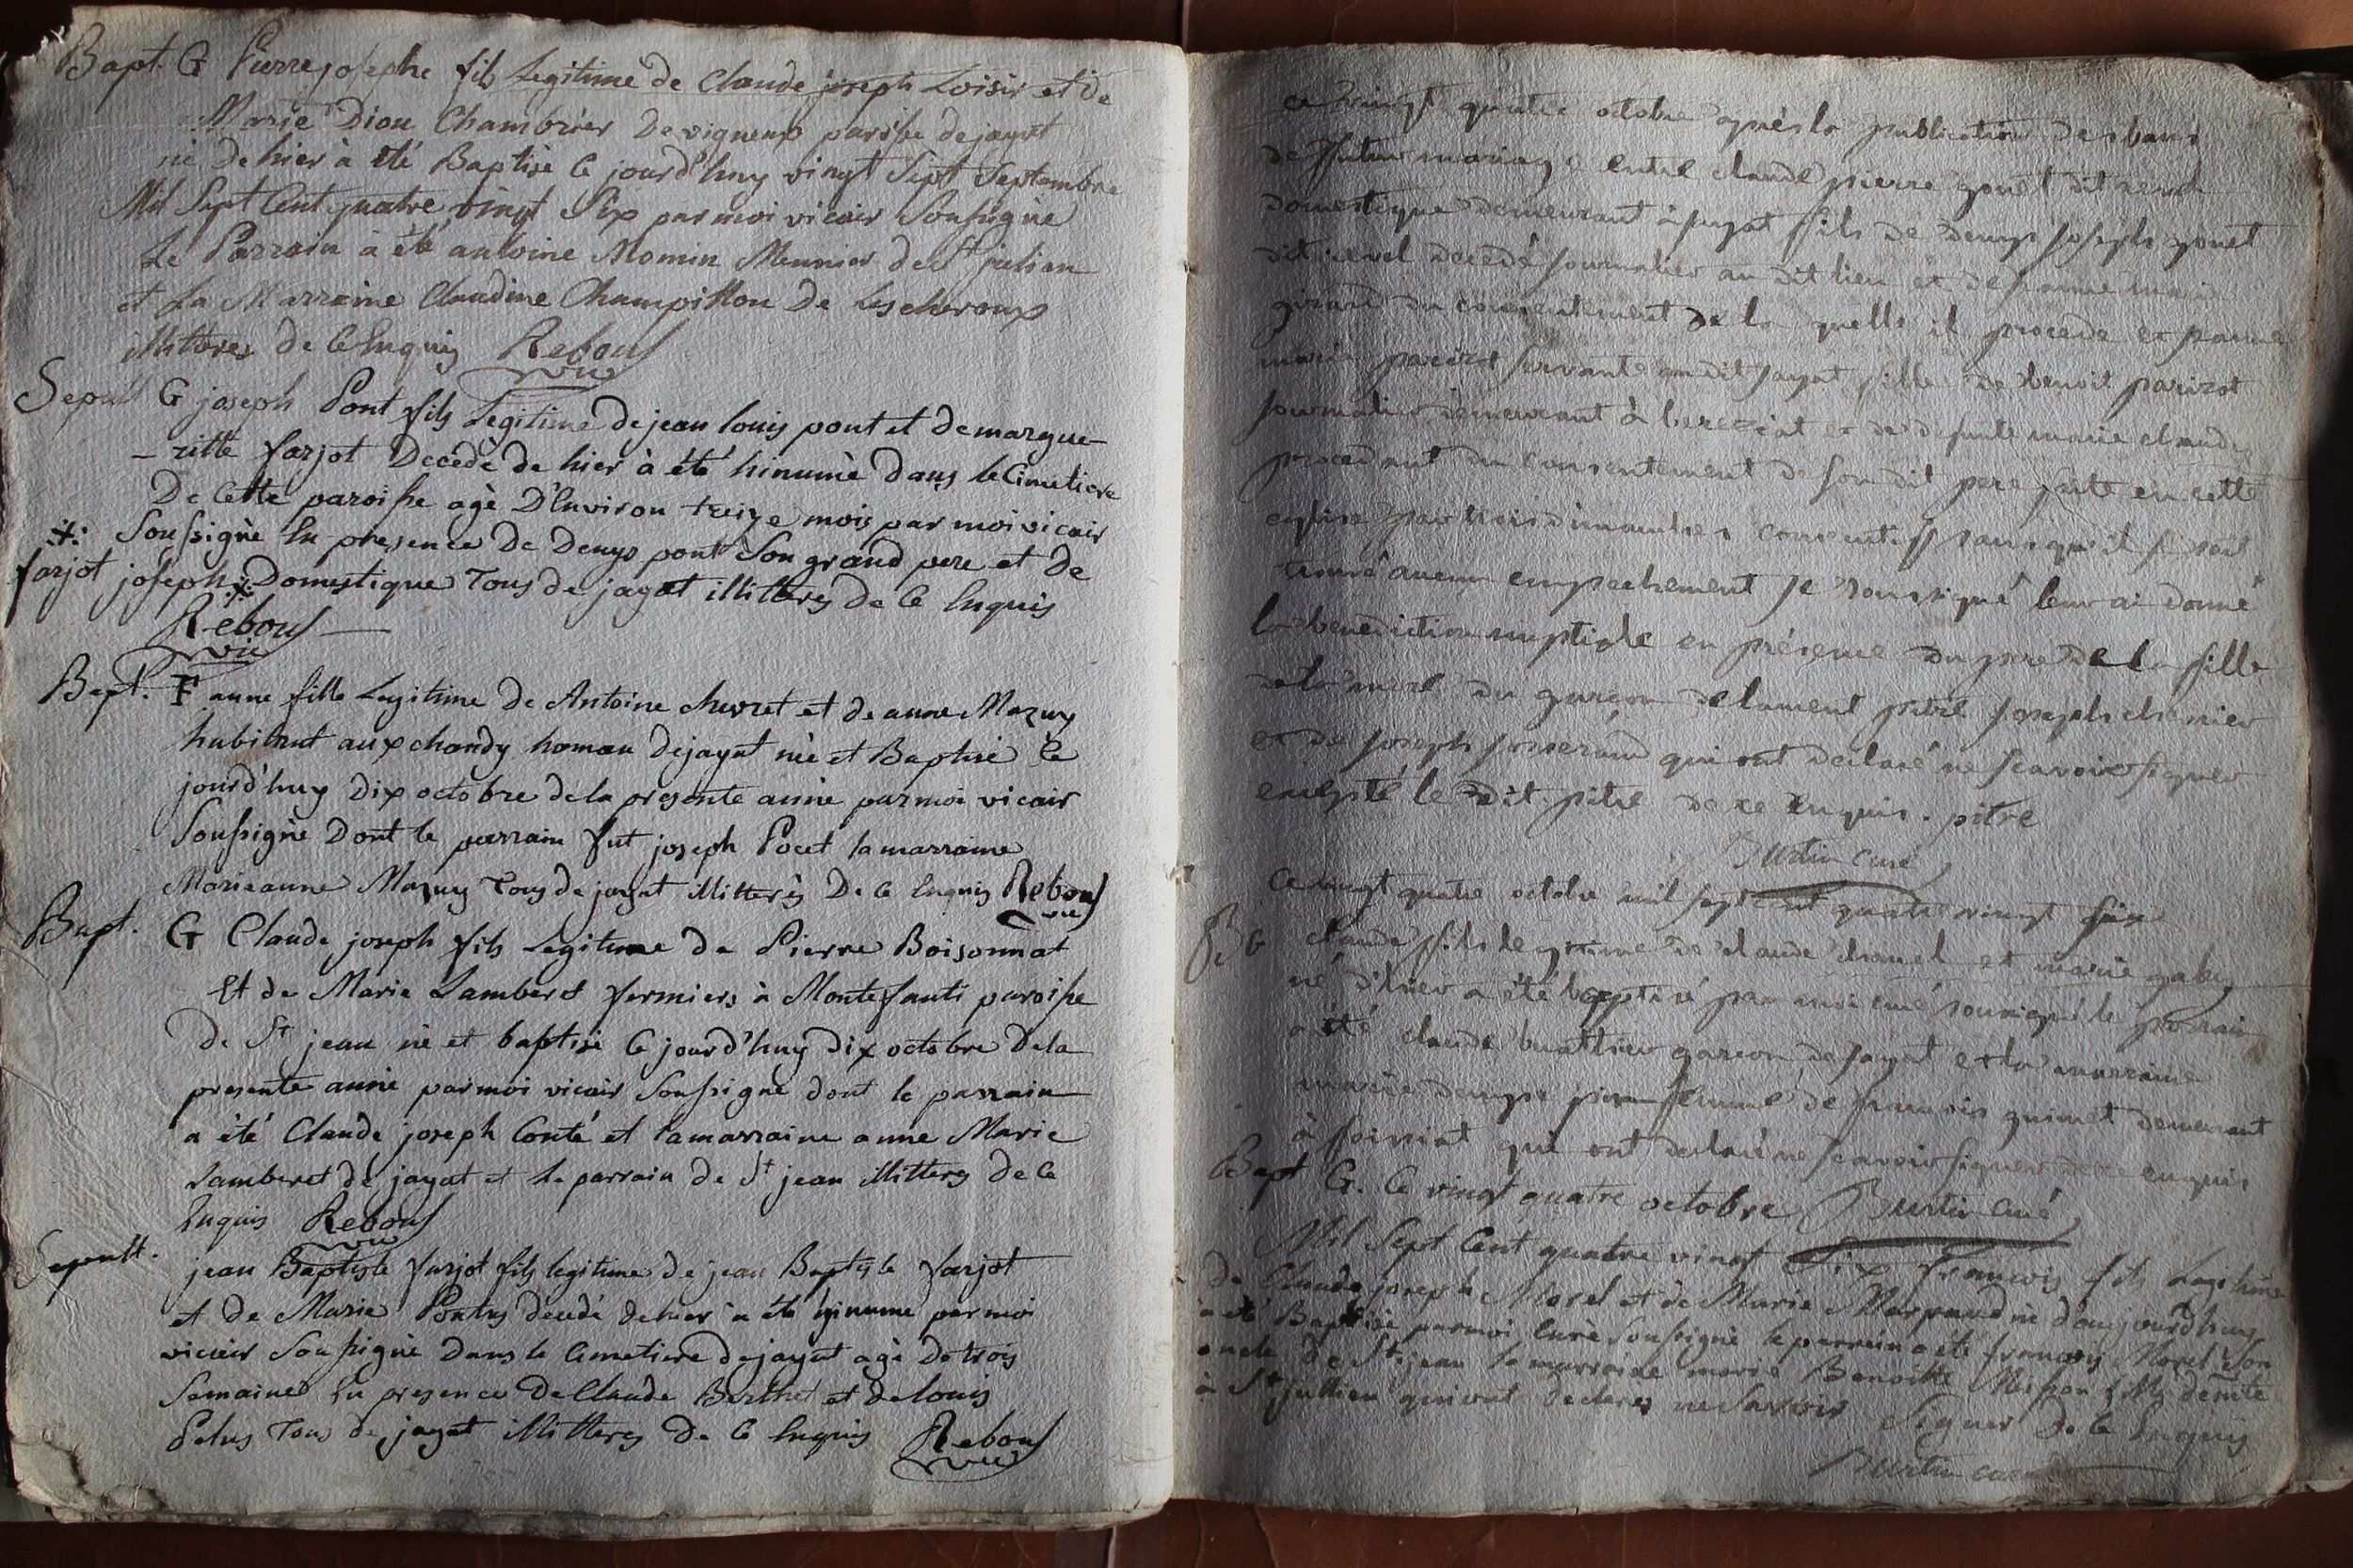 Bapt. G Pierre josephe fils Legitime de Claude joseph Loisir et De
Marie Diou Chambrier De vigneux paroisse dejayat
né De hier à été Baptisé Ce jourd'huy vingt Sept Septembre
Mil Sept Cent quatre vingt Six par moi vicair Soussigné
Le Parrain à été antoine Momin Meunier de St julien
et La Marraine Claudine Champillon De Lescheroux
illitteres De Ce Enquis Rebouf
vic
Sepult G joseph Pont fils Legitime de jean louis pont et demargue-
-ritte farjot Decedé de hier à été hinumé dans le Cimetiere
De Cette paroisse agé D'Environ treize mois par moi vicair
Soussigné En presence De Denys pont Son grand pere et De
farjot joseph Domestique Tous de jayat illitteres de Ce Enquis
Rebouf
vic
Bapt. F anne fille Legitime de Antoine chevret et de anne Mazuy
habitant aux chandy hameau dejayat née et Baptisé Ce
jourd'huy Dix octobre dela presente année par moi vicair
Soussigné Dont le parrain fut joseph Pocet la marraine
Marieanne Mazuy Tous de jayat illitterés De Ce Enquis Rebouf
vic
Bapt. G Claude joseph fils Legitime de Pierre Boisonnat
Et de Marie Lamberet fermiers à Montefanti paroisse
de St jean né et baptisé Ce jourd'huy dix octobre Dela
presente année par moi vicair Soussigné dont le parrain
a été Claude joseph Conté et la marraine anne Marie
Lamberet de jayat et le parrain de St jean illitterés de Ce
Enquis Rebouf
vic
Sepult. jean Baptiste farjot fils legitime de jean Baptiste farjot
et de Marie decedé de hier à été hinumé par moi
vicair Soussigné Dans le Cimetiere dejayat agé De trois
Semaines En presence De Claude Berthet et de louis
Pelus Tous de jayat illitteres De Ce Enquis Rebouf
vic
ce vingt quatre octobre après la publication des bans
de futur mariage entre claude pierre gonet dit revel
domestique demeurant à jayat fils de denys joseph gonet
dit revel décédé journalier au dit lieu et de jeanne marie
girard du consentement de la quelle il procede et
marie parizot servante au dit jayat fille de benoit parizot
journalier demeurant à bereziat et de defunte marie claude
procedant du consentement de son dit pere faite en cette
eglise par trois dimanches consecutifs sans qu'il se soit
trouvé aucun empechement je soussigné leur ai donné
la benediction nuptiale en présence du pere de la fille
de la mere du garçon de laurent pitre joseph chenier
et de joseph josserand qui ont declaré ne scavoir signer
excepté le dit pitre de ce enquis. pitre
Burtin curé
Ce vingt quatre octobre mil sept cent quatre vingt six
B G claude fils legitime de claude chanel et marie gabey
né d'hier a été baptisé par moi curé soussigné le parrain
a été claude buathier garcon de jayat et la marraine
marie denyse femme de francois guinet demeurant
à foissiat qui ont declaré ne scavoir signer de ce enquis
Bapt G. Ce vingt quatre octobre Burtin curé
Mil Sept Cent quatre vingt Six francois fils Legitime
De Claude joseph Morel et de Marie Marpaud né d'aujourd'huy
a été Baptisé par moi Curé Soussigné le parrain a été francois Morel Son
oncle de St jean la marraine marie Benoitte
à St jullien qui ont declarés ne Savoir Signer De Ce Enquis
Burtin curé